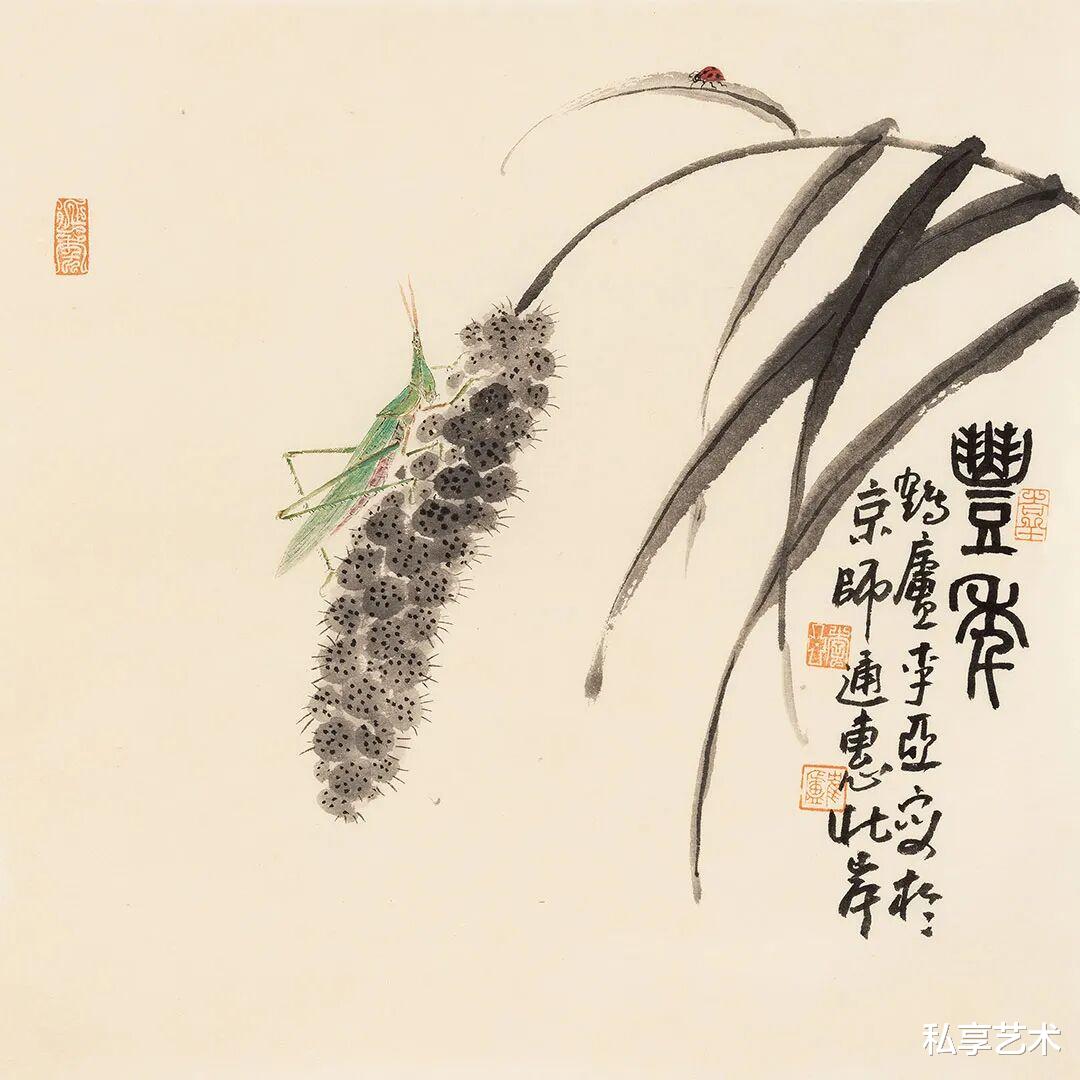 豐年
鶴廬李亞寫於
京師通惠北岸
私享艺术